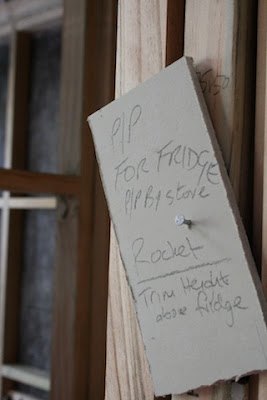 P/P
FOR FRIDGE
P/P By stove
Rocket
Trim Height
above fridge